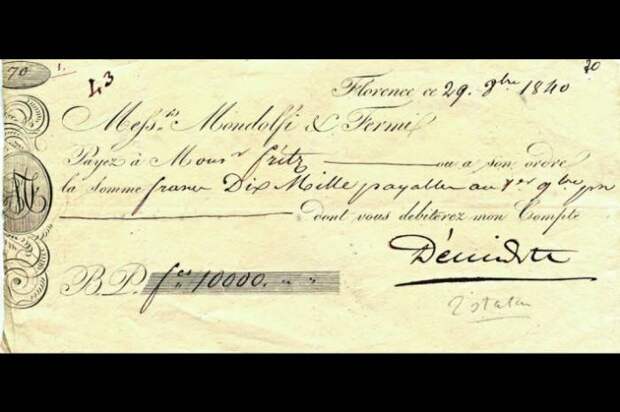 70 1. 43 70
Florence ce 29. 8bre 1840
Mess.rs Mondolfi & Fermi
Payez à Mons.r fritz ou a son ordre
la somme francs Dix Mille payables au 1er 9bre
dont vous debiterez mon Compte
B.P. fcs 10000. " "